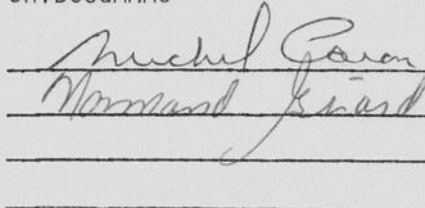 Michel Caron
Normand Girard